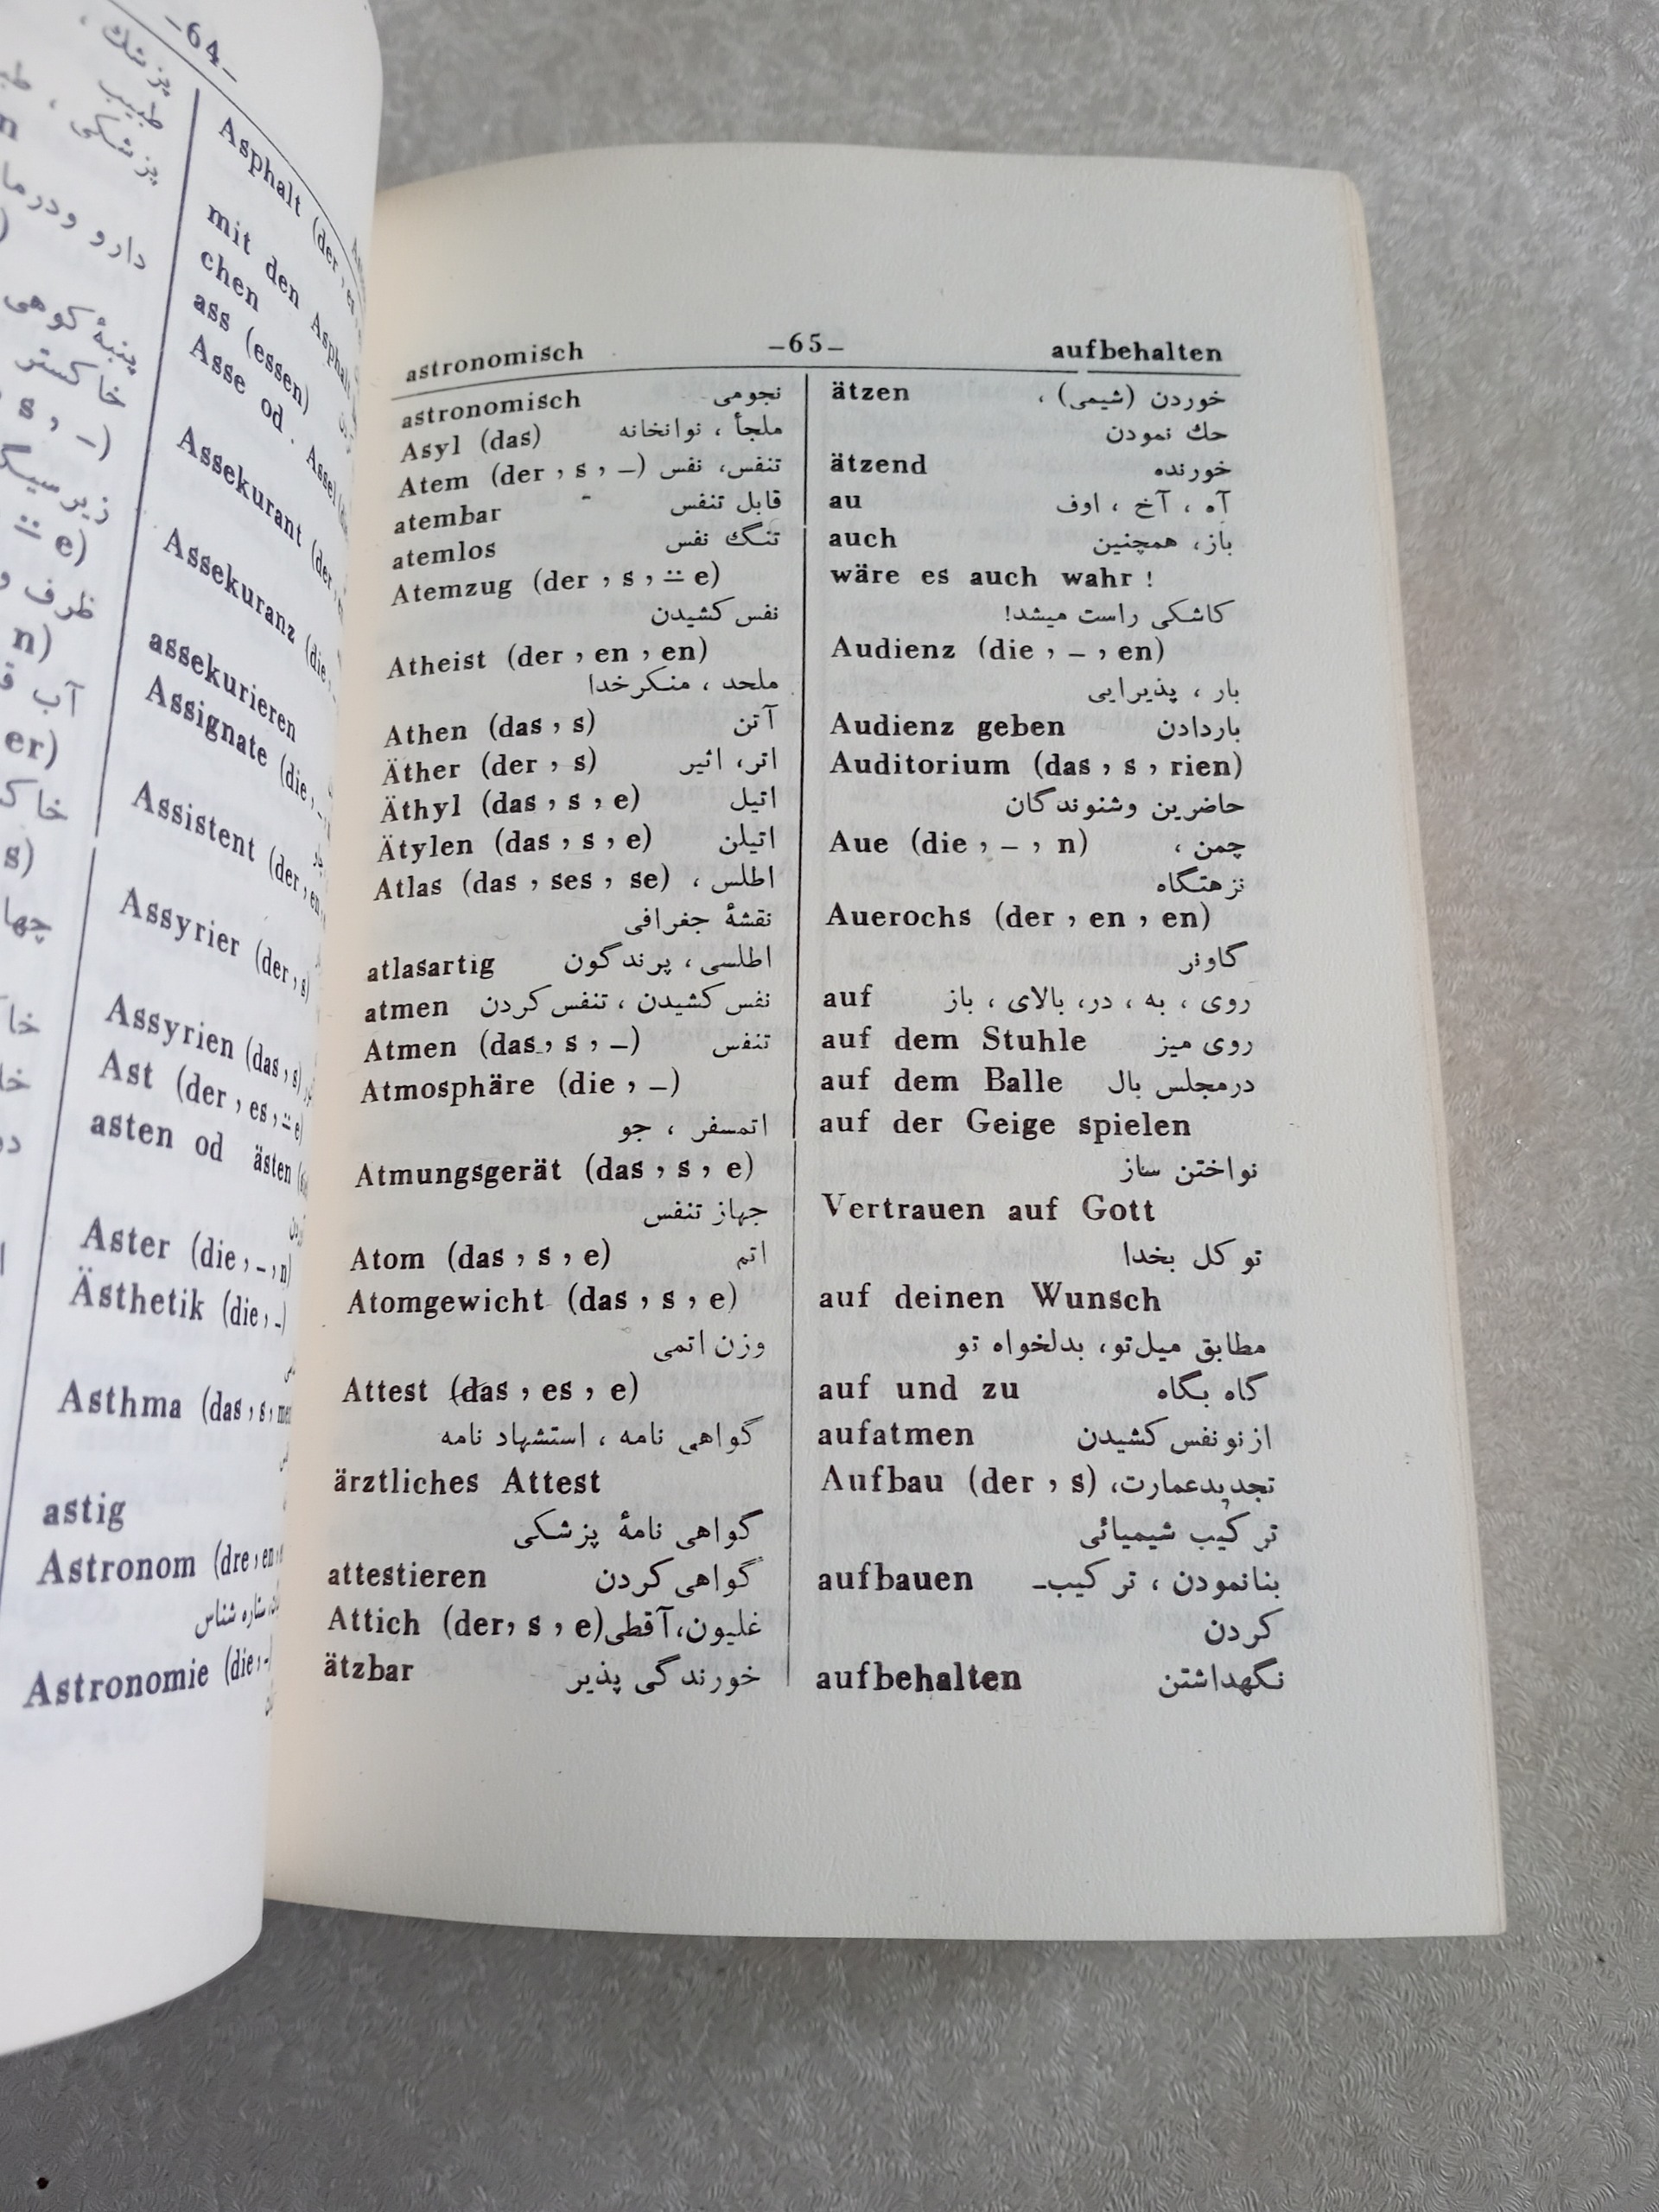 -64-
پزشك ،
طبیب
پزشکی ،
دارو ودرما
پنبهٔ کوهی
خاکستر
s , –)
e)
ظرف و
n)
آب
er)
s)
Asphalt (der ,
mit den
chen
ass (essen)
Asse od . Assel
Assekurant (der ,
Assekuranz (die ,
assekurieren
Assignate (die ,
Assistent (der , en
Assyrier (der , s)
Assyrien (das , s)
Ast (der , es , ⸚e)
asten od ästen
Aster (die , – , n)
Ästhetik (die , –)
Asthma (das , s , men
astig
Astronom (dre , en ,
ستاره شناس
Astronomie (die , –)
astronomisch –65– aufbehalten
astronomisch نجومی
Asyl (das) ملجأ ، نوانخانه
Atem (der , s , –) تنفس، نفس
atembar قابل تنفس
atemlos تنگ نفس
Atemzug (der , s , ⸚e)
نفس کشیدن
Atheist (der , en , en)
ملحد ، منکرخدا
Athen (das , s) آتن
Äther (der , s) اتر، اثیر
Äthyl (das , s , e) اتیل
Ätylen (das , s , e) اتیلن
Atlas (das , ses , se) اطلس ،
نقشهٔ جغرافی
atlasartig اطلسی ، پرندگون
atmen نفس کشیدن ، تنفس کردن
Atmen (das , s , –) تنفس
Atmosphäre (die , –)
اتمسفر ، جو
Atmungsgerät (das , s , e)
جهاز تنفس
Atom (das , s , e) اتم
Atomgewicht (das , s , e)
وزن اتمی
Attest (das , es , e)
گواهی نامه ، استشهاد نامه
ärztliches Attest
گواهی نامهٔ پزشکی
attestieren گواهی کردن
Attich (der, s , e) غلیون،آقطی
ätzbar خورندگی پذیر
ätzen خوردن (شیمی) ،
حك نمودن
ätzend خورنده
au آه ، آخ ، اوف
auch باز، همچنین
wäre es auch wahr !
کاشکی راست میشد!
Audienz (die , – , en)
بار ، پذیرایی
Audienz geben باردادن
Auditorium (das , s , rien)
حاضرین وشنوندگان
Aue (die , – , n) چمن ،
نزهتگاه
Auerochs (der , en , en)
گاونر
auf روی ، به ، در، بالای ، باز
auf dem Stuhle روی میز
auf dem Balle درمجلس بال
auf der Geige spielen
نواختن ساز
Vertrauen auf Gott
توکل بخدا
auf deinen Wunsch
مطابق میل‌تو، بدلخواه تو
auf und zu گاه بگاه
aufatmen ازنونفس کشیدن
Aufbau (der , s) تجدیدعمارت،
ترکیب شیمیائی
aufbauen بنانمودن ، ترکیب–
کردن
aufbehalten نگهداشتن